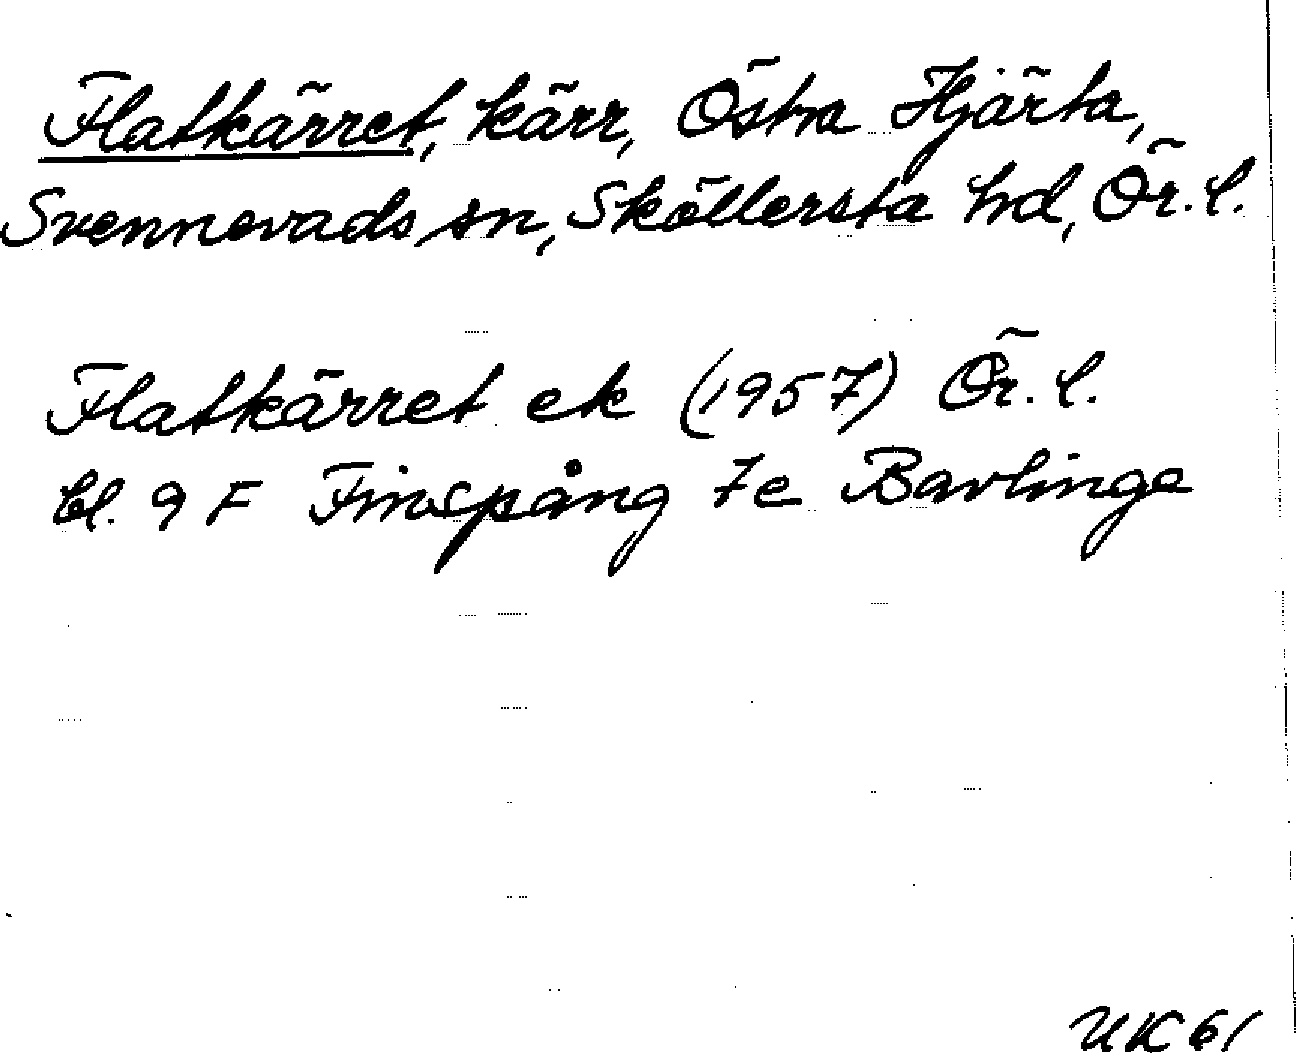 Flatkärret, kärr, Östra Hjärta,
Svennevads sn, Sköllersta hd, Ör. l.
Flatkärret ek (1957) Ör. l.
bl. 9 F Finspång 7e Bavlinge
UK 61